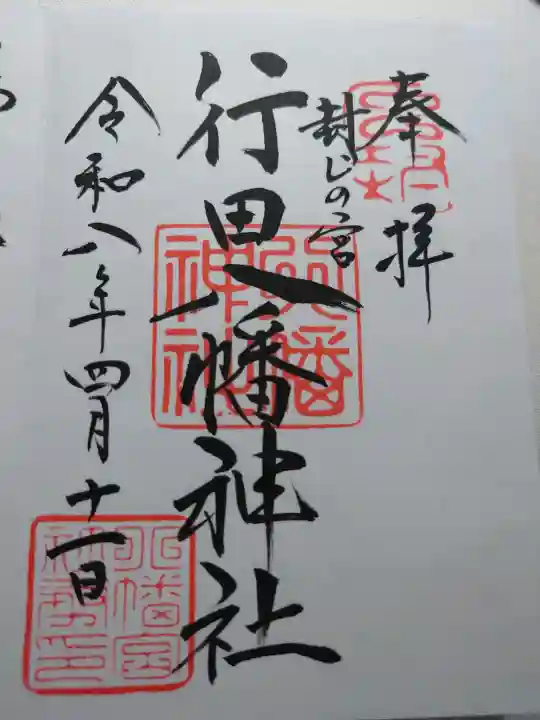 奉拝
封じの宮
行田八幡神社
令和八年四月十一日